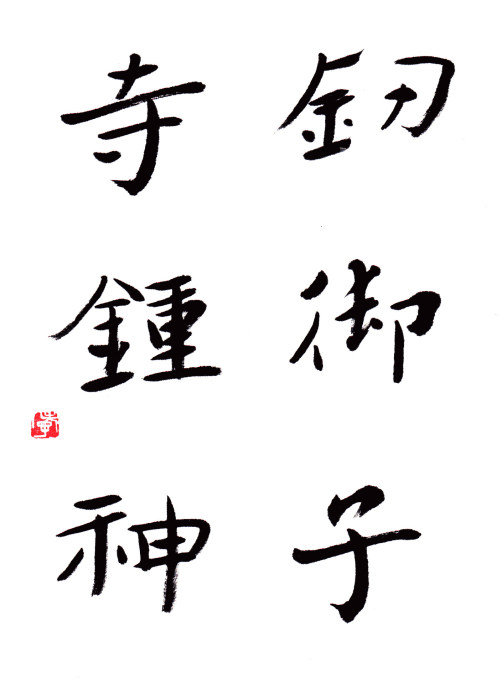 釼御子
寺鍾神